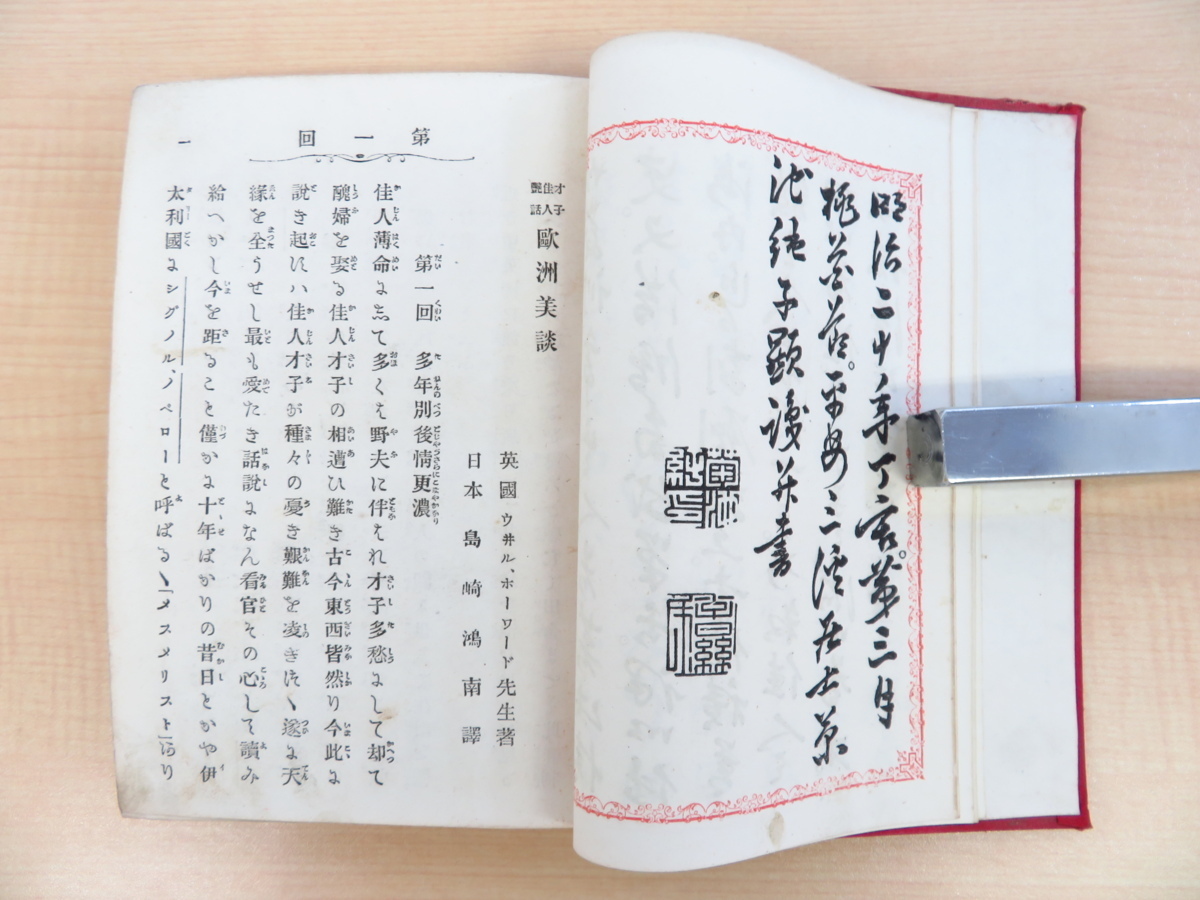 明治二十年丁亥。第三月
桃花節。平安三溪居士菊
池純子顯譔并書
第一回
才子
佳人
艶話
歐洲美談
英國 ウ井ル、ホーワード先生著
日本 島崎鴻南譯
第一回 多年別後情更濃
佳人薄命にして多くは野夫に伴はれ才子多愁にして却て
醜婦を娶る佳人才子の相遭ひ難き古今東西皆然り今此に
說き起こすハ佳人才子が種々の憂き艱難を凌ぎつゝ遂に天
緣を全うせし最も愛たき話說になん看官その心して讀み
給へかし今を距ること僅かに十年ばかりの昔日とかや伊
太利國にシグノル、ノベローと呼ばるゝ「メスメリスト」あり
一